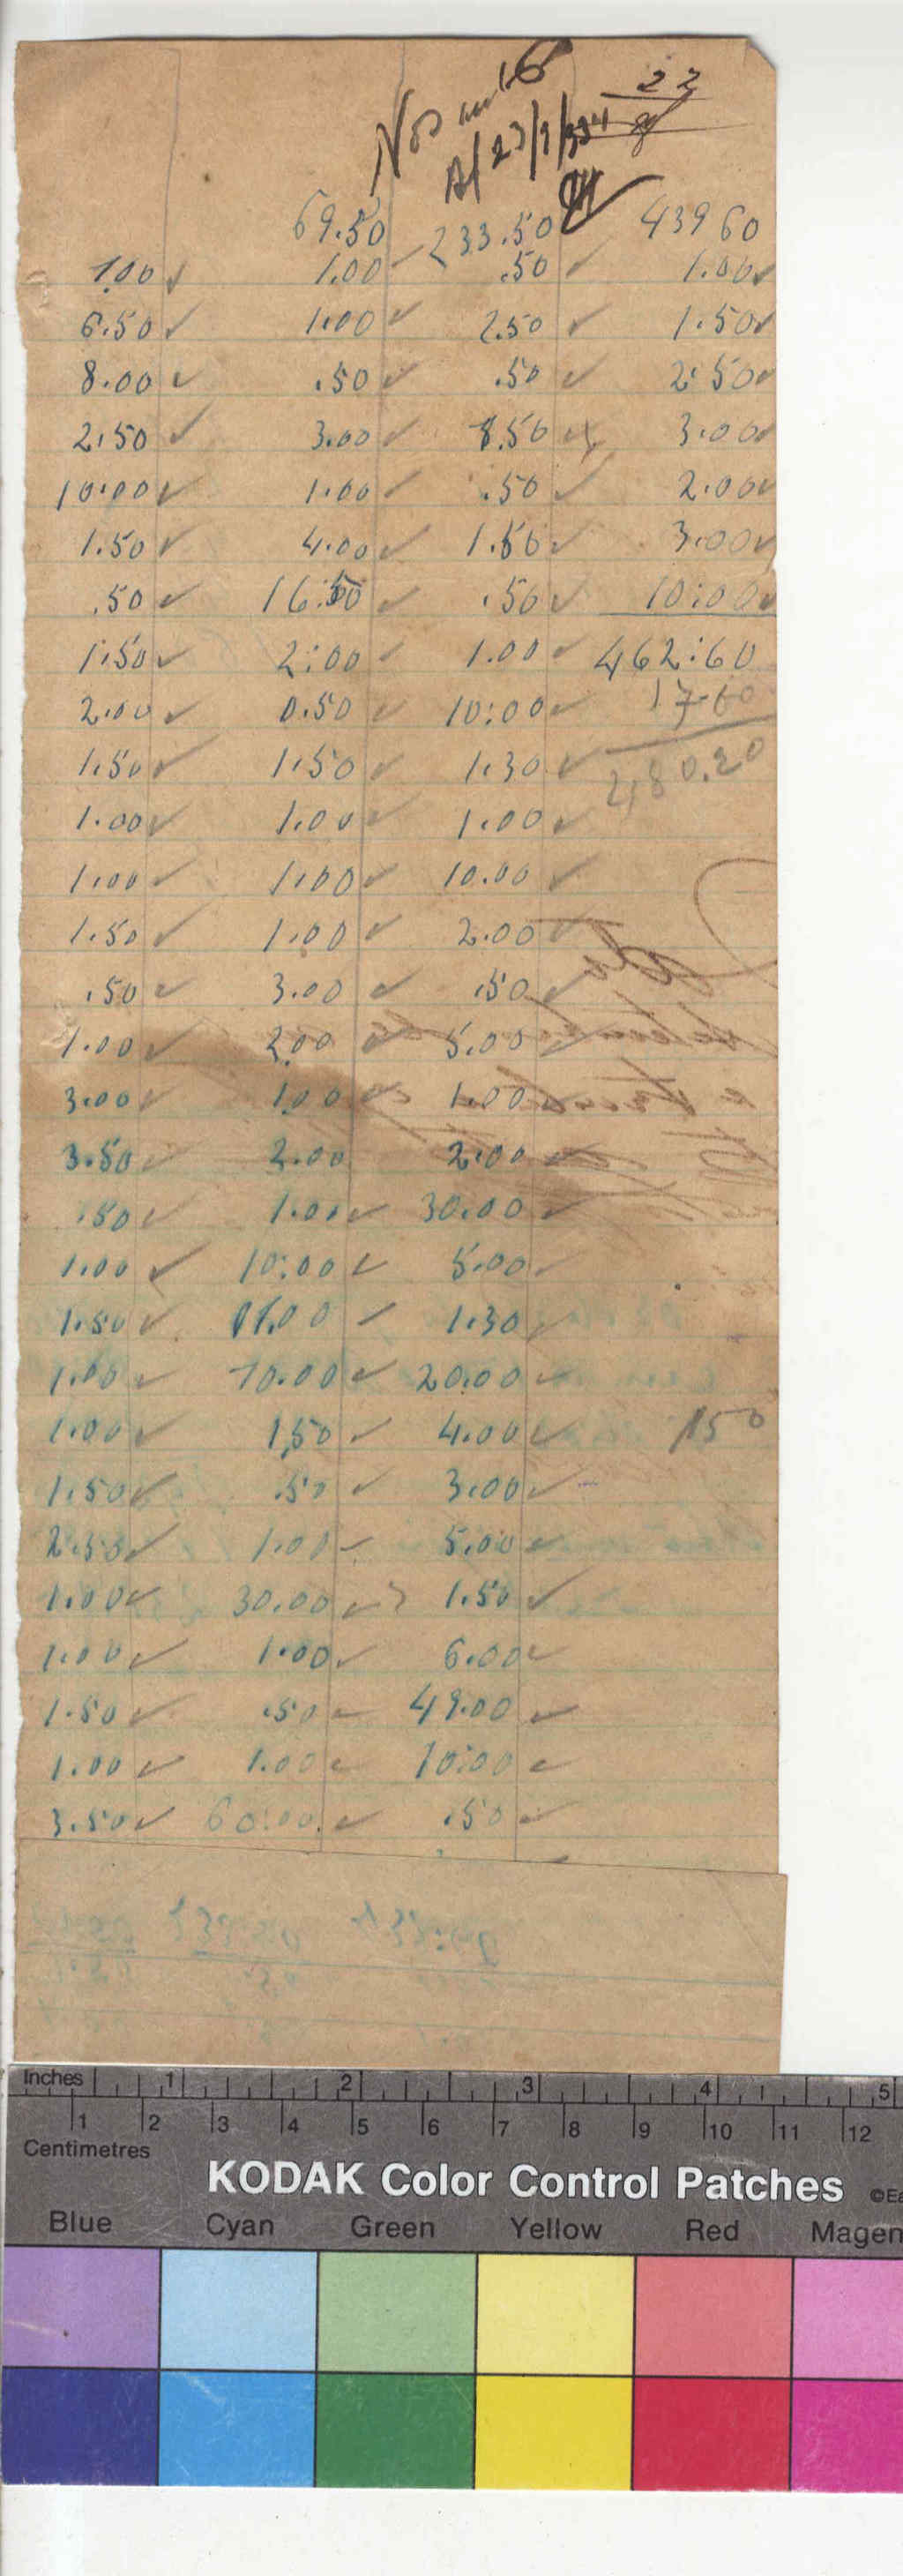 22
23/9/334
69.50 233.50 43960
1.00 ✓ 1.00 ✓ .50 ✓ 1.00 ✓
6.50 ✓ 1.00 ✓ 2.50 ✓ 1.50 ✓
8.00 ✓ .50 ✓ .50 ✓ 2.50 ✓
2.50 ✓ 3.00 ✓ 8.50 ✓ 3.00 ✓
10.00 ✓ 1.00 ✓ .50 ✓ 2.00 ✓
1.50 ✓ 4.00 ✓ 1.50 ✓ 3.00 ✓
.50 ✓ 16.50 ✓ .50 ✓ 10:00 ✓
1.50 ✓ 2:00 ✓ 1.00 ✓ 462:60
2.00 ✓ 0.50 ✓ 10:00 ✓ 1760
1.50 ✓ 1.50 ✓ 1.30 ✓ 480.20
1.00 ✓ 1.00 ✓ 1.00 ✓
1.00 ✓ 1.00 ✓ 10.00 ✓
1.50 ✓ 1.00 ✓ 2.00 ✓
.50 ✓ 3.00 ✓ .50 ✓
1.00 ✓ 2.00 ✓ 5.00 ✓
3.00 ✓ 1.00 ✓ 1.00 ✓
3.50 ✓ 2.00 2.00 ✓
.50 ✓ 1.00 ✓ 30.00 ✓
1.00 ✓ 10:00 ✓ 5.00 ✓
1.50 ✓ 11.00 ✓ 1.30 ✓
1.00 ✓ 10.00 ✓ 20.00 ✓
1.00 ✓ 1.50 ✓ 4.00 ✓ 150
1.50 ✓ .50 ✓ 3.00 ✓
2.50 ✓ 1.00 ✓ 5.00 ✓
1.00 ✓ 30.00 ✓ 1.50 ✓
1.00 ✓ 1.00 ✓ 6.00 ✓
1.50 ✓ .50 ✓ 49.00 ✓
1.00 ✓ 1.00 ✓ 10:00 ✓
3.50 ✓ 60:00 ✓ .50 ✓
Inches 1 2 3 4 5
1 2 3 4 5 6 7 8 9 10 11 12
Centimetres
KODAK Color Control Patches
Blue Cyan Green Yellow Red Magen